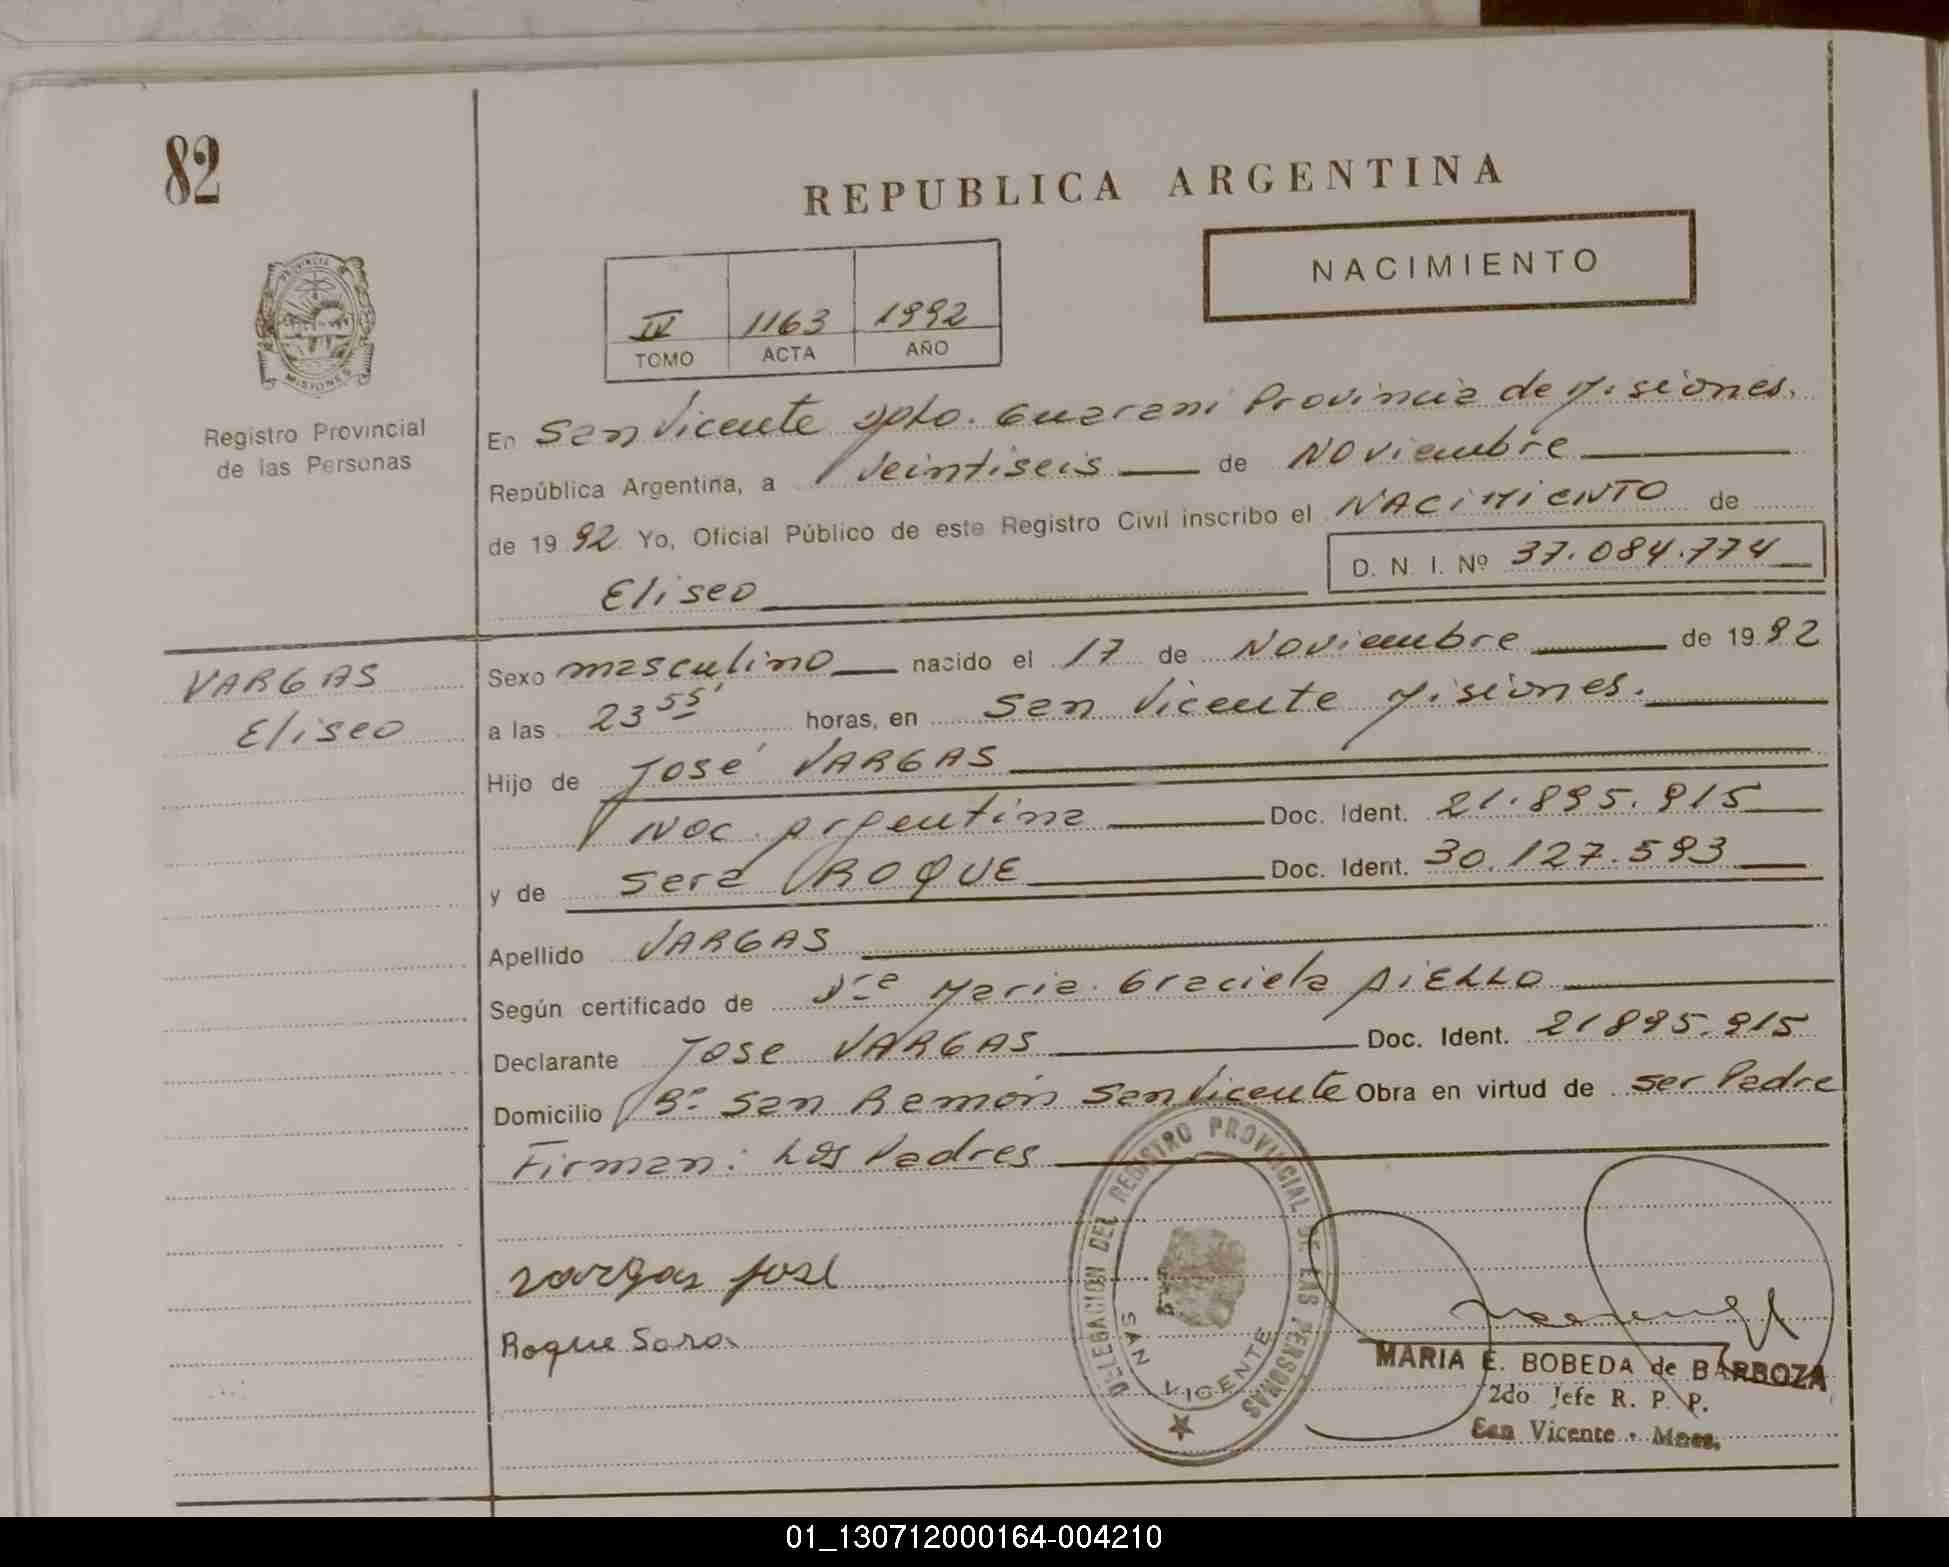 82
REPUBLICA ARGENTINA
NACIMIENTO
PROVINCIA DE
MISIONES
Registro Provincial
de las Personas
IV 1163 1992
TOMO ACTA AÑO
En San Vicente Dpto. Guarani Provincia de Misiones.
República Argentina, a veintiseis de Noviembre
de 1992 Yo, Oficial Público de este Registro Civil inscribo el NACIMIENTO de
Eliseo
D. N. I. Nº 37.084.774
VARGAS
Eliseo
Sexo masculino nacido el 17 de Noviembre de 1992
a las 23 55' horas, en San Vicente Misiones.
Hijo de José VARGAS
Nac. Argentina Doc. Ident. 21.895.915
y de Sara ROQUE Doc. Ident. 30.127.593
Apellido VARGAS
Según certificado de Dra Maria Graciela AiELLO
Declarante Jose VARGAS Doc. Ident. 21895.915
Domicilio Bº San Ramón San Vicente Obra en virtud de ser Padre
Firman: Los Padres
Vargas José
Roque Sara
DELEGACION DEL REGISTRO PROVINCIAL DE LAS PERSONAS
SAN VICENTE
MARIA E. BOBEDA de BARBOZA
2do Jefe R. P. P.
San Vicente - Mnes.
01_130712000164-004210